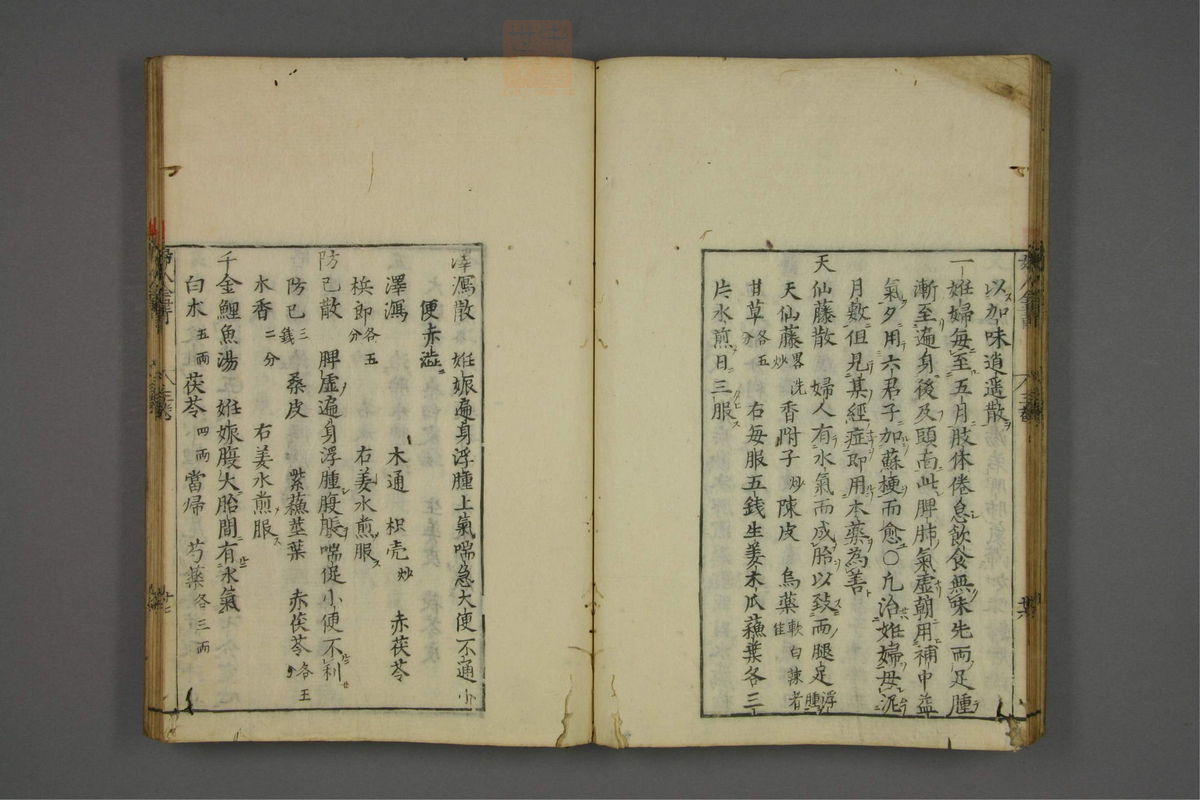 以加味逍遥散
一姙婦毎至五月肢体倦怠飲食無味先両足腫
漸至遍身後及頭面此脾肺氣虚朝用補中益
氣夕用六君子加蘇梗而愈〇凢治姙婦毋泥
月数但見某經症即用本藥為善
天仙藤散 婦人有水氣而成胎以致両腿足浮腫
天仙藤畧洗炒 香附子炒 陳皮 烏藥軟白辣者佳
甘草各五分 右毎服五銭生姜木瓜蘓葉各三
片水煎日三服
澤瀉散 姙娠遍身浮腫上氣喘急大便不通小
便赤澁
澤瀉 木通 枳壳炒 赤茯苓
梹郎各五分 右姜水煎服
防已散 脾虚遍身浮腫腹脹喘促小便不利
防已三銭 桑皮 紫蘓莖葉 赤茯苓各
木香二分 右姜水煎服
千金鯉魚湯 姙娠腹大胎間有水氣
白朮五両 茯苓四両 當歸 芍藥各三両